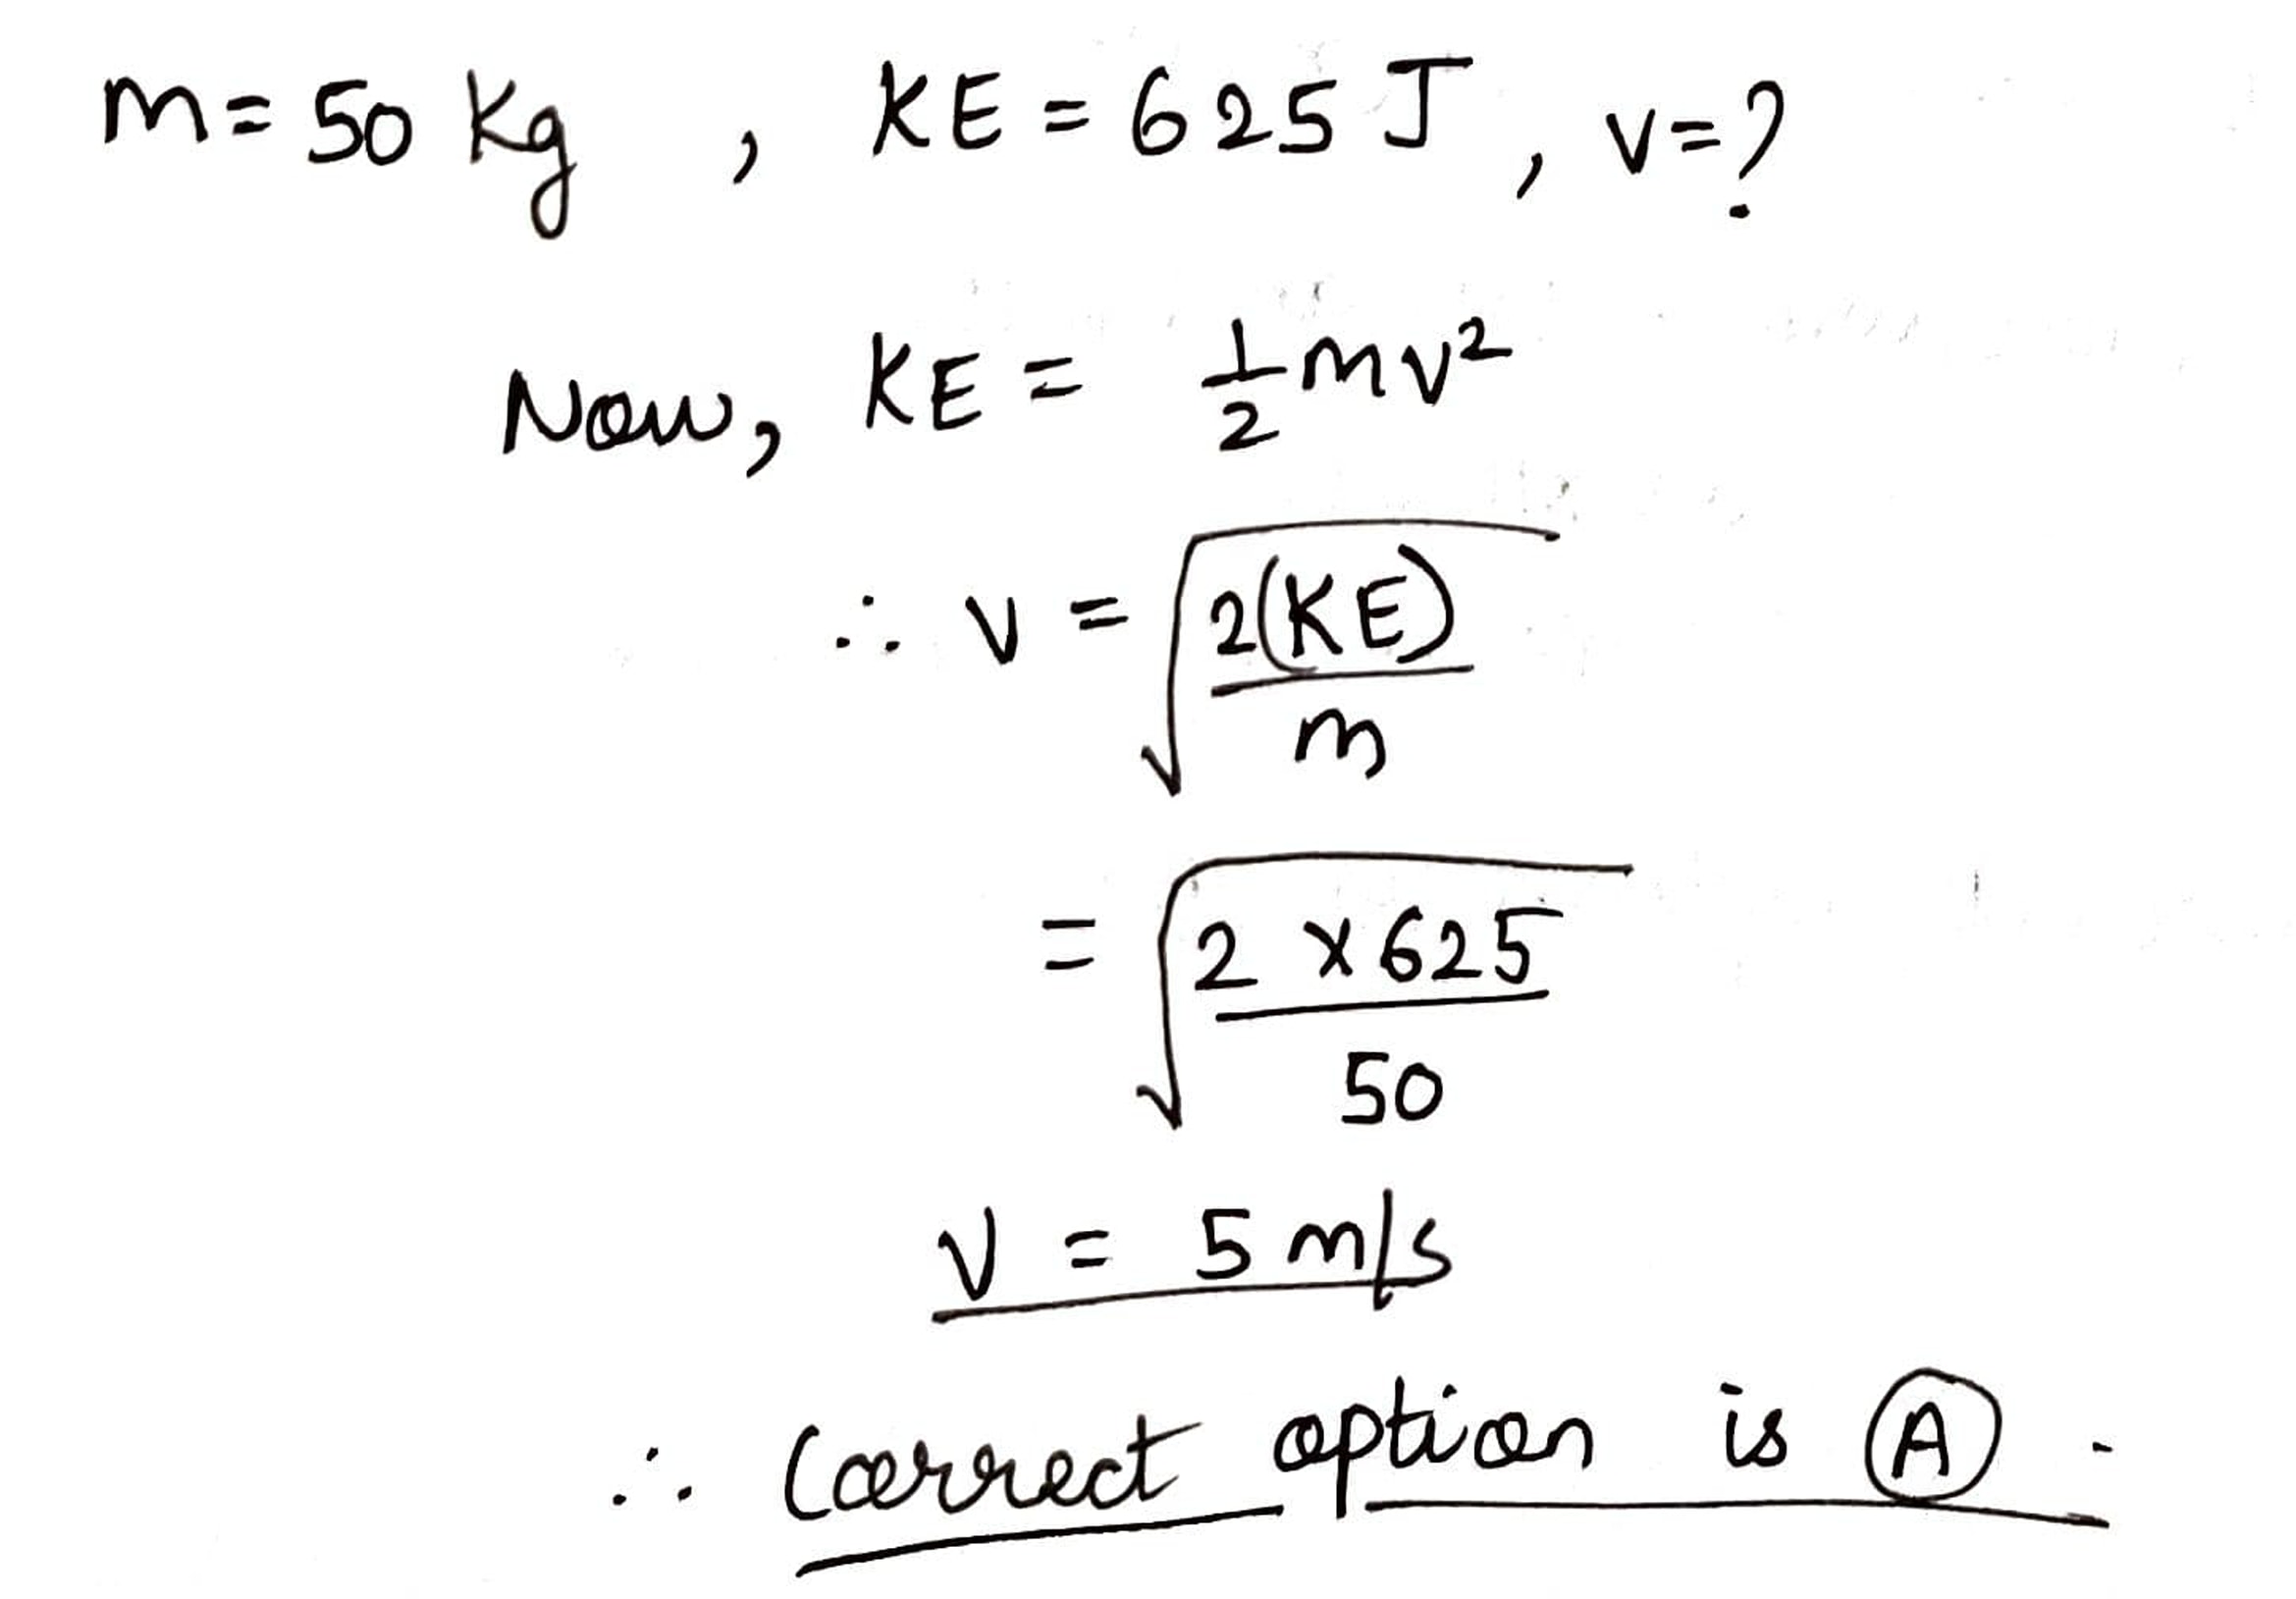 m = 50 Kg , KE = 625 J , v = ?
Now, KE = 1/2 mv²
∴ v = √(2(KE)/m)
= √(2 × 625/50)
V = 5 m/s
∴ Correct option is Ⓐ .